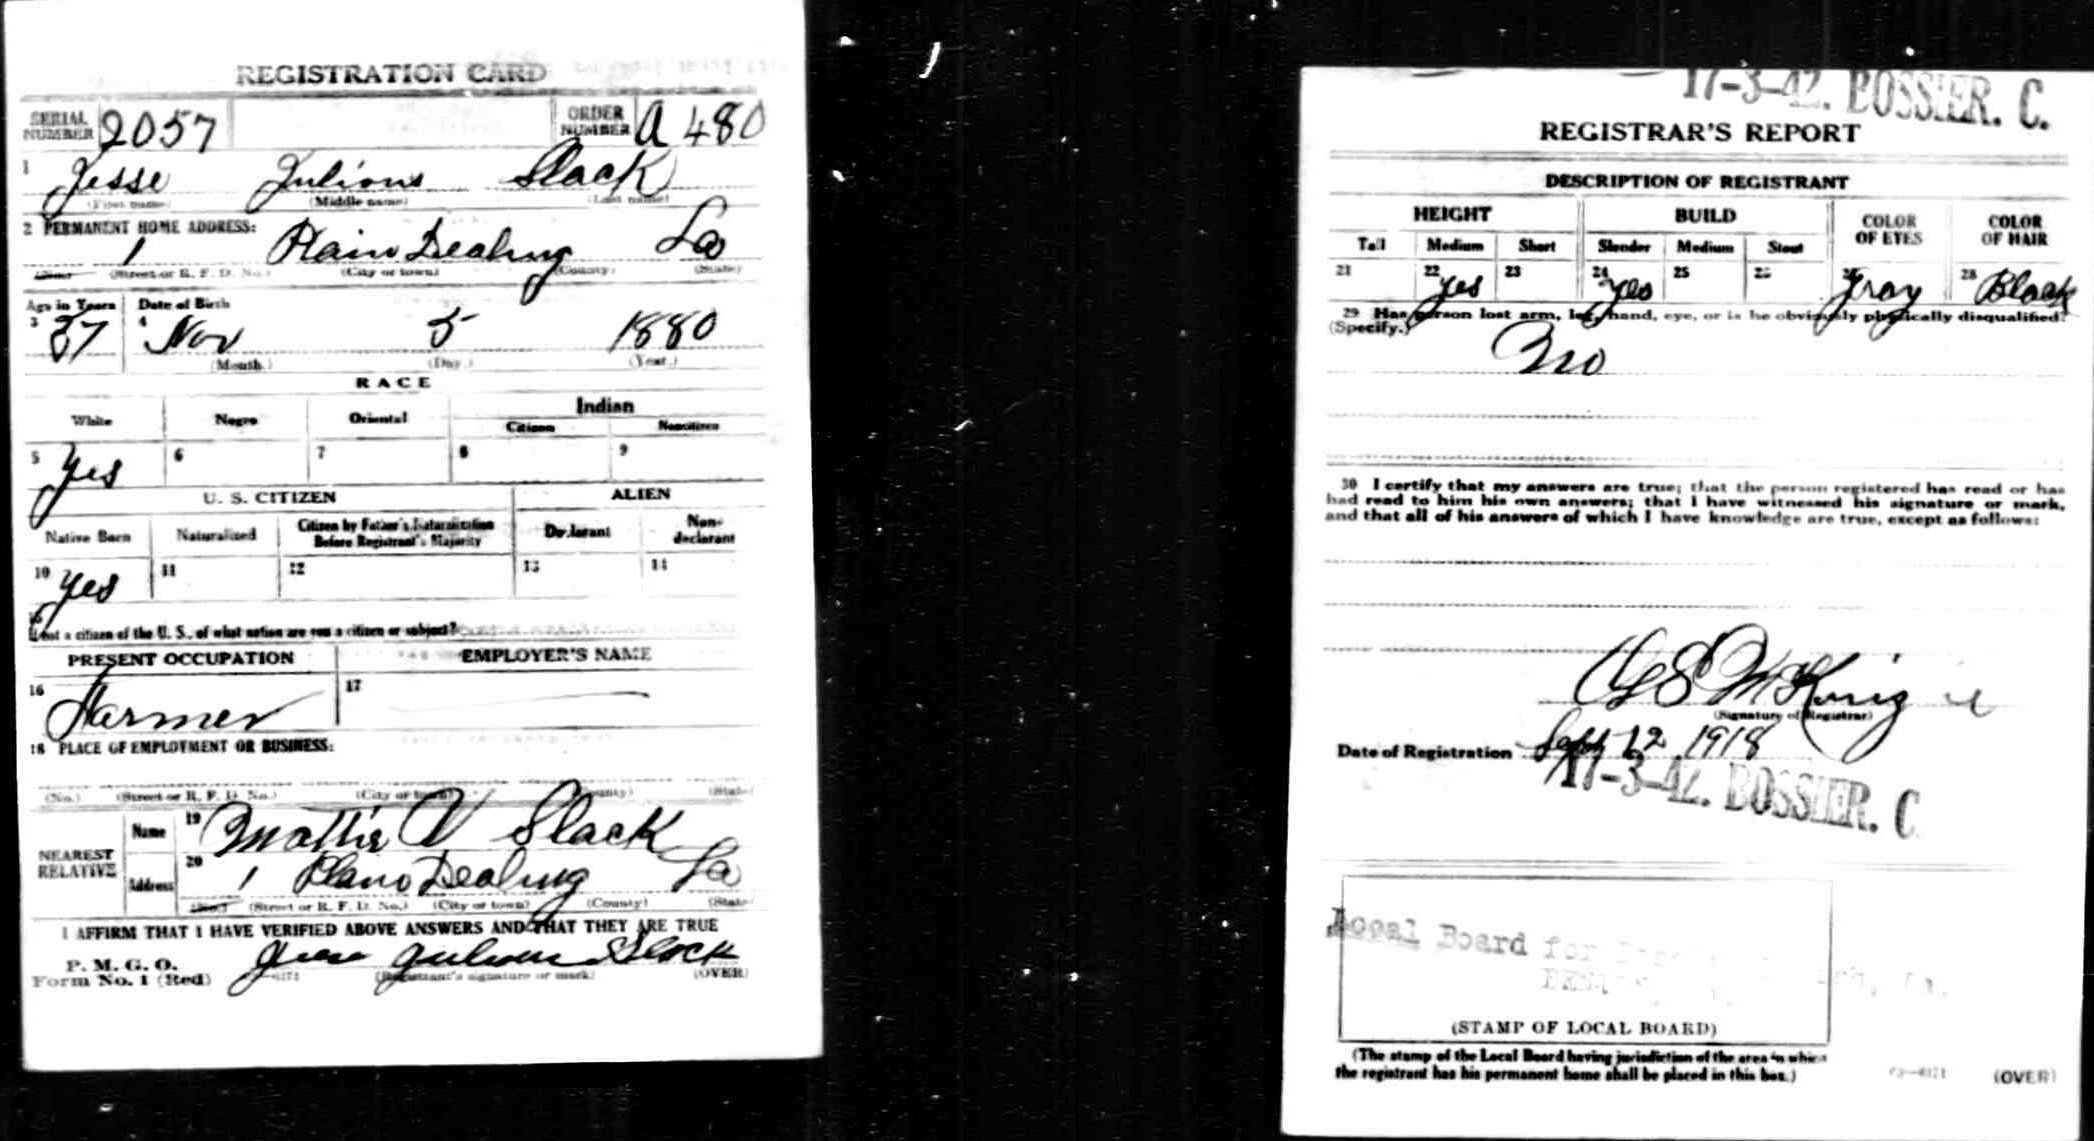 REGISTRATION CARD
SERIAL NUMBER 2057 ORDER NUMBER A 480
1 Jesse Julious Slack
(First name) (Middle name) (Last name)
2 PERMANENT HOME ADDRESS:
1 Plain Dealing La
(No.) (Street or R. F. D. No.) (City or town) (County) (State)
Age in Years Date of Birth
3 37 4 Nov 5 1880
(Month.) (Day.) (Year.)
RACE
White Negro Oriental Indian
Citizen Noncitizen
5 Yes 6 7 8 9
U. S. CITIZEN ALIEN
Native Born Naturalized Citizen by Father's Naturalization Before Registrant's Majority Declarant Non-declarant
10 Yes 11 12 13 14
15
If not a citizen of the U. S., of what nation are you a citizen or subject?
PRESENT OCCUPATION EMPLOYER'S NAME
16 Farmer 17
18 PLACE OF EMPLOYMENT OR BUSINESS:
(No.) (Street or R. F. D. No.) (City or town) (County) (State)
NEAREST RELATIVE Name 19 Mattie V Slack
Address 20 1 Plain Dealing La
(No.) (Street or R. F. D. No.) (City or town) (County) (State)
I AFFIRM THAT I HAVE VERIFIED ABOVE ANSWERS AND THAT THEY ARE TRUE
P. M. G. O.
Form No. 1 (Red) Jesse Julious Slack
(Registrant's signature or mark) (OVER)
17-3-42. BOSSIER. C.
REGISTRAR'S REPORT
DESCRIPTION OF REGISTRANT
HEIGHT BUILD COLOR OF EYES COLOR OF HAIR
Tall Medium Short Slender Medium Stout
21 22 Yes 23 24 Yes 25 26 27 Gray 28 Black
29 Has person lost arm, leg, hand, eye, or is he obviously physically disqualified?
(Specify.)
No
30 I certify that my answers are true; that the person registered has read or has
had read to him his own answers; that I have witnessed his signature or mark,
and that all of his answers of which I have knowledge are true, except as follows:
(Signature of Registrar)
Date of Registration Sept 12 1918
17-3-42. BOSSIER. C
Local Board for
(STAMP OF LOCAL BOARD)
(The stamp of the Local Board having jurisdiction of the area in which
the registrant has his permanent home shall be placed in this box.)
(OVER)